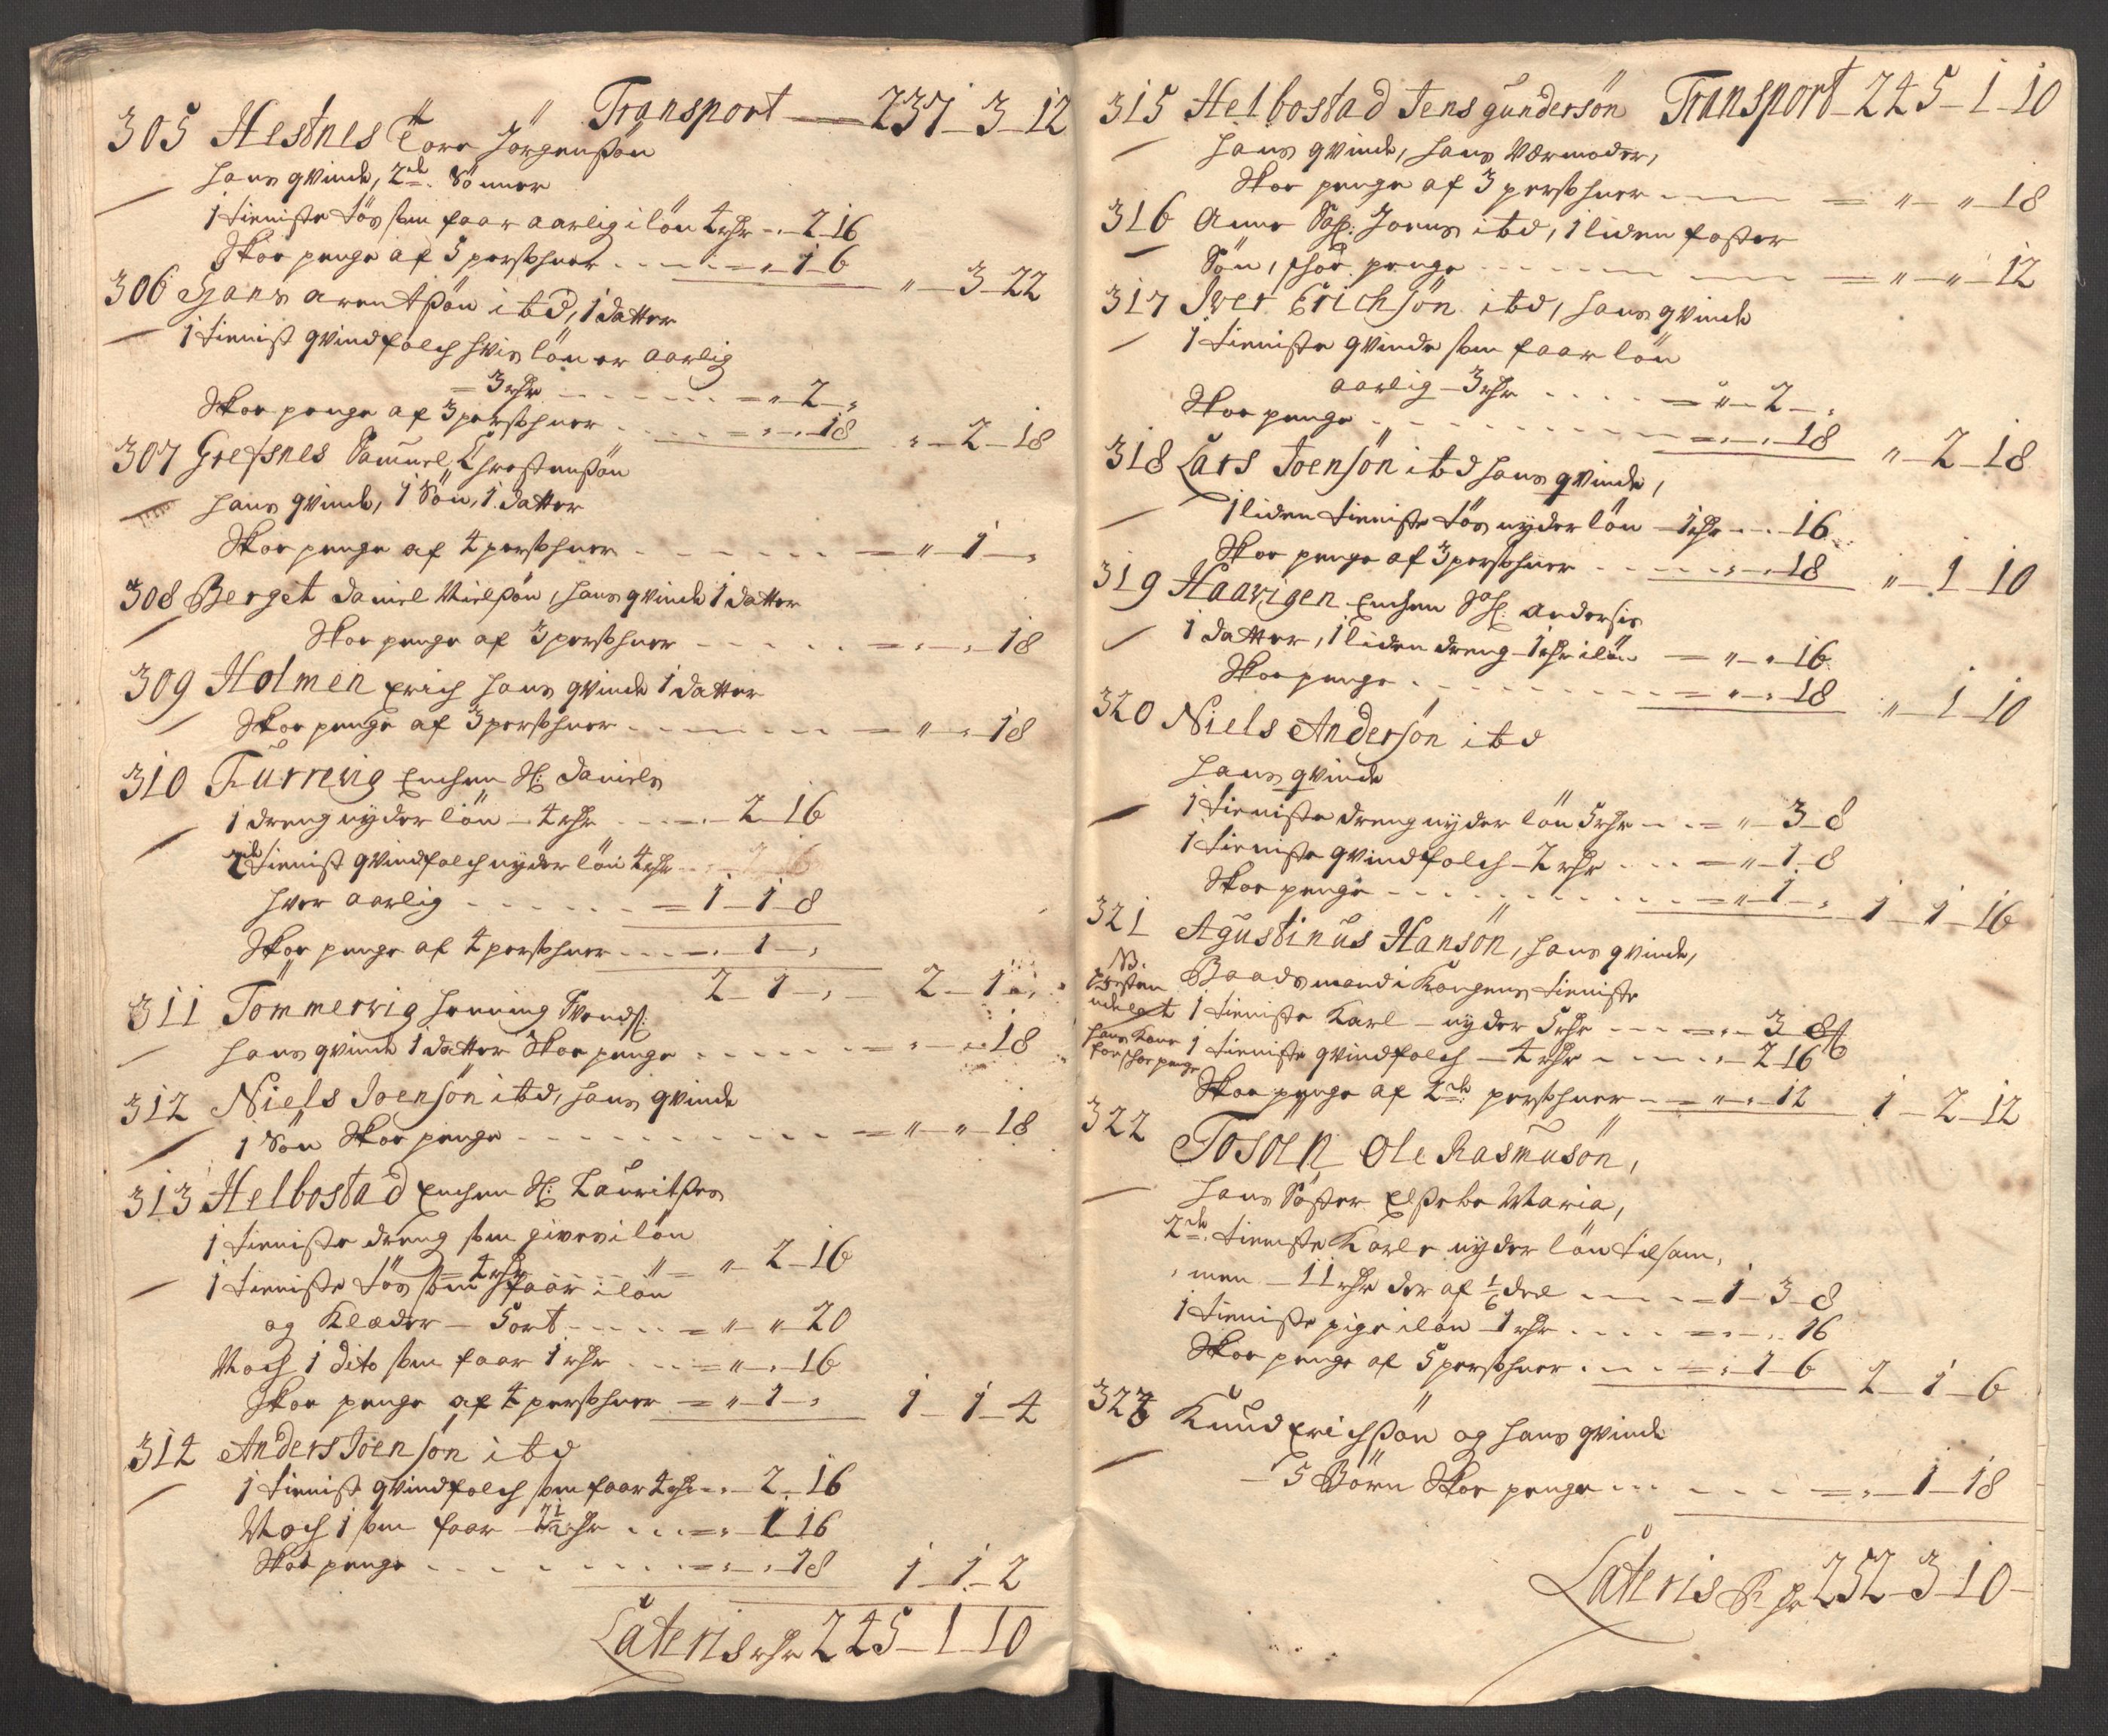 Transport — 237 – 3 – 12
305 Hestnes Tore Jörgensön
hans qvinde, 2de Sönner
1 tieniste tös som faar aarlig i lön 4 rdr - „ 2 – 16
Skoe penge af 5 persohner - - - „ – 1 – 6
„ – 3 – 22
306 Hans arentsön ibd, 1 datter
1 tienist qvindfolch hvis lön er aarlig
3 rdr - - - - „ 2 – „
Skoe penge af 3 persohner - - - „ – „ 18
„ – 2 – 18
307 Grefsnes Samuel Chrestensön
hans qvinde, 1 Sön, 1 datter
Skoe penge af 4 persohner - - - „ – 1 – „
308 Berget Daniel Nielsön, hans qvinde 1 datter
Skoe penge af 3 persohner - - - „ – „ 18
309 Holmen Erich hans qvinde 1 datter
Skoe penge af 3 persohner - - - „ – „ 18
310 Furrevig Enchen Sl: Daniels
1 dreng nyder lön – 4 rdr - - - „ 2 – 16
2de tienist qvindfolch nyder lön 4 rdr
hver aarlig - - - 1 – 1 – 8
Skoe penge af 4 persohner - - - „ 1 – „
2 – 1 – „ 2 – 1 – „
311 Tömmervig Henning Svends:
hans qvinde 1 datter Skoe penge - - - „ – „ 18
312 Niels Joensön ibd, hans qvinde
1 Sön Skoe penge - - - „ – „ – 18
313 Helbostad Enchen Sl: Lauritses
1 tieniste dreng som gives i lön
4 rdr - - „ – „ 2 – 16
1 tieniste tös som faar i lön
og Klæder – 5 ort - - - „ – „ 20
Noch 1 dito som faar 1 rdr - - „ – „ 16
Skoe penge af 4 persohner – „ – 1 – „
1 – 1 – 4
314 Anders Joensön ibd
1 tienist qvindfolch som faar 4 rdr - „ – 2 – 16
Noch 1 som faar 2½ rdr - - - „ – 1 16
Skoe penge - - - „ – „ 18
1 – 1 – 2
Lateris rdr 245 – 1 – 10
315 Helbostad Jens Gundersön Transport – 245 – 1 – 10
hans qvinde, hans Værmoder,
Skoe penge af 3 persohner - - - „ – „ – 18
316 Anne Sal: Joens ibd, 1 liden foster
Sön, schoe penge - - - „ – „ – 12
317 Iver Erichsön ibd, hans qvinde
1 tieniste qvinde som faar lön
aarlig – 3 rdr - - - „ – 2 – „
Skoe penge - - - „ – „ 18
„ – 2 – 18
318 Lars Joensön ibd hans qvinde,
1 liden tieniste tös nyder lön – 1 rdr - - 16
Skoe penge af 3 persohner - - - „ – „ 18
„ – 1 – 10
319 Haavigen Enchen Sal: Andersis
1 datter, 1 liden dreng – 1 rdr i lön – „ – „ 16
Skoe penge - - - „ – „ 18
„ – 1 – 10
320 Niels Andersön ibd
hans qvinde
1 tieniste dreng nyder lön 5 rdr - - „ – 3 – 8
1 tieniste qvindfolch – 2 rdr - - - „ – 1 – 8
Skoe penge - - - „ – 1 – „
1 – 1 – 16
321 Agustinus Hansön, hans qvinde,
Baadsmand i Kongens tieniste
1 tieniste Karl – nyder 5 rdr - - - „ – 3 8
1 tieniste qvindfolch – 4 rdr - - - „ – 2 16
Skoe penge af 2de persohner - - „ – „ – 12
1 – 2 – 12
NB.
hans Kone
for schoe penge
322 Tosen Ole Rasmusön,
hans Söster Elsebe Maria,
2de tieniste Karle nyder lön tilsam,
men – 11 rdr der af 1/6 deel - - - 1 – 3 – 8
1 tieniste pige i lön – 1 rdr - - - „ – „ 16
Skoe penge af 5 persohner - - - „ 1 – 6
2 – 1 – 6
323 Knud Erichsön og hans qvinde
5 Börn Skoe penge - - - „ – 1 – 18
Lateris Rdr 252 – 3 – 10 –